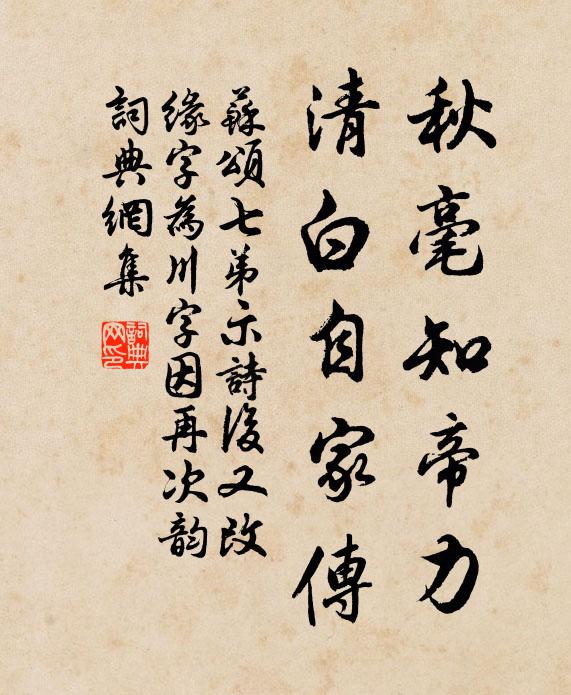 秋毫知帝力
清白自家傳
蘇頌七弟示詩後又改
緣字為川字因再次韵
詞典網集
詞典網印